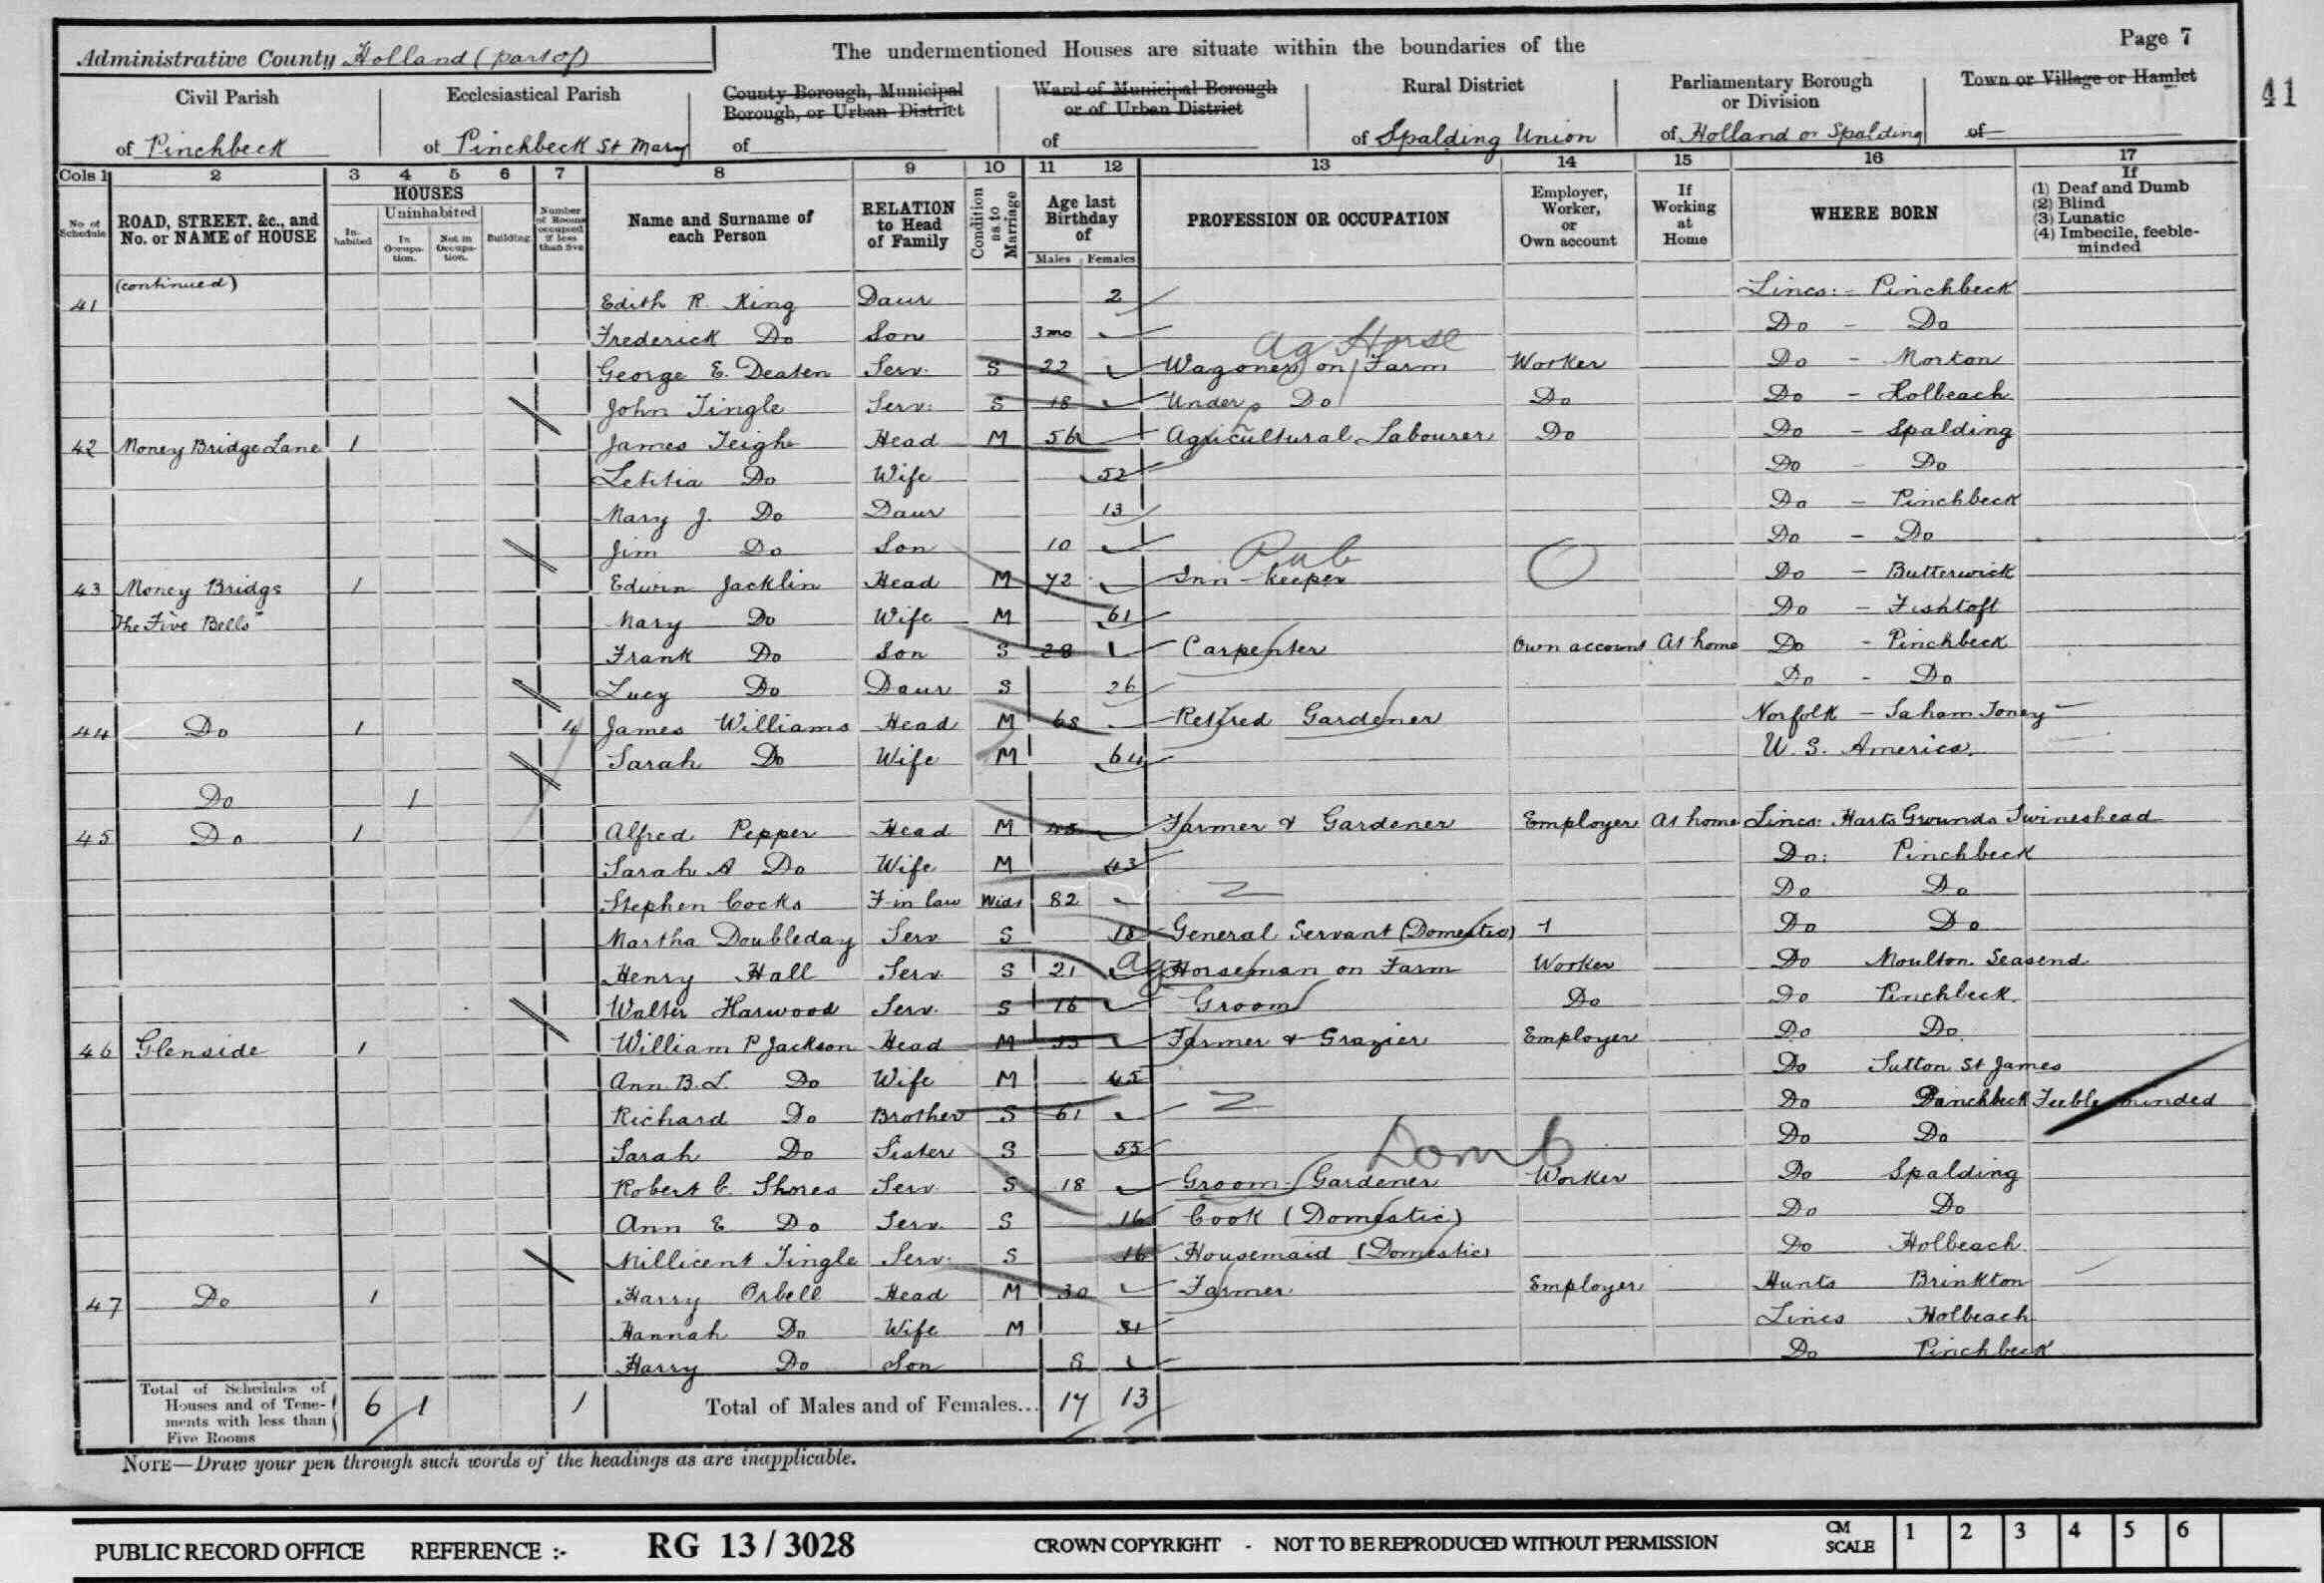 Page 7
41
Administrative County Holland (part of)
The undermentioned Houses are situate within the boundaries of the
Civil Parish of Pinchbeck
Ecclesiastical Parish of Pinchbeck St Mary
County Borough, Municipal Borough, or Urban District of
Ward of Municipal Borough or of Urban District of
Rural District of Spalding Union
Parliamentary Borough or Division of Holland or Spalding
Town or Village or Hamlet of
Cols 1 2 3 4 5 6 7 8 9 10 11 12 13 14 15 16 17
No of Schedule
ROAD, STREET, &c., and No. or NAME of HOUSE
HOUSES
Inhabited
Uninhabited
In Occupation.
Not in Occupation.
Building
Number of Rooms occupied if less than five
Name and Surname of each Person
RELATION to Head of Family
Condition as to Marriage
Age last Birthday of
Males Females
PROFESSION OR OCCUPATION
Employer, Worker, or Own account
If Working at Home
WHERE BORN
If
(1) Deaf and Dumb
(2) Blind
(3) Lunatic
(4) Imbecile, feeble-minded
41 (continued) Edith R. King Daur 2 Lincs:- Pinchbeck
Frederick Do Son 3 mo Do - Do
Ag Horse
George E. Deaten Serv. S 22 Wagoner on Farm Worker Do - Morton
John Tingle Serv: S 18 Under Do Do Do - Holbeach
42 Money Bridge Lane 1 James Teigh Head M 56 Agricultural Labourer Do Do - Spalding
Letitia Do Wife 52 Do - Do
Mary J. Do Daur 13 Do - Pinchbeck
Jim Do Son 10 Do - Do
Pub
43 Money Bridge 1 Edwin Jacklin Head M 72 Inn-keeper Do - Butterwick
"The Five Bells" Mary Do Wife M 61 Do - Fishtoft
Frank Do Son S 28 Carpenter Own account At home Do - Pinchbeck
Lucy Do Daur S 26 Do - Do
44 Do 1 4 James Williams Head M 68 Retired Gardener Norfolk - Saham Toney
Sarah Do Wife M 64 U. S. America.
Do 1
45 Do 1 Alfred Pepper Head M 45 Farmer & Gardener Employer At home Lincs: Harts Grounds Swineshead
Sarah A Do Wife M 43 Do: Pinchbeck
Stephen Cocks F in law Widr 82 Do Do
Martha Doubleday Serv S 18 General Servant (Domestic) Do Do
Henry Hall Serv. S 21 Ag Horseman on Farm Worker Do Moulton Seasend
Walter Harwood Serv. S 16 Groom Do Do Pinchbeck.
46 Glenside 1 William P Jackson Head M 53 Farmer & Grazier Employer Do Do
Ann B. L. Do Wife M 45 Do Sutton St James
Richard Do Brother S 61 Do Pinchbeck Feeble minded
Sarah Do Sister S 55 Do Do
Domb
Robert C. Shores Serv S 18 Groom-Gardener Worker Do Spalding
Ann E Do Serv. S 16 Cook (Domestic) Do Do
Millicent Tingle Serv. S 16 Housemaid (Domestic) Do Holbeach
47 Do 1 Harry Orbell Head M 30 Farmer Employer Hunts Brinkton
Hannah Do Wife M 31 Lincs Holbeach
Harry Do Son 8 Do Pinchbeck
Total of Schedules of Houses and of Tenements with less than Five Rooms 6 1 1 Total of Males and of Females... 17 13
NOTE—Draw your pen through such words of the headings as are inapplicable.
PUBLIC RECORD OFFICE REFERENCE :- RG 13 / 3028 CROWN COPYRIGHT - NOT TO BE REPRODUCED WITHOUT PERMISSION CM SCALE 1 2 3 4 5 6